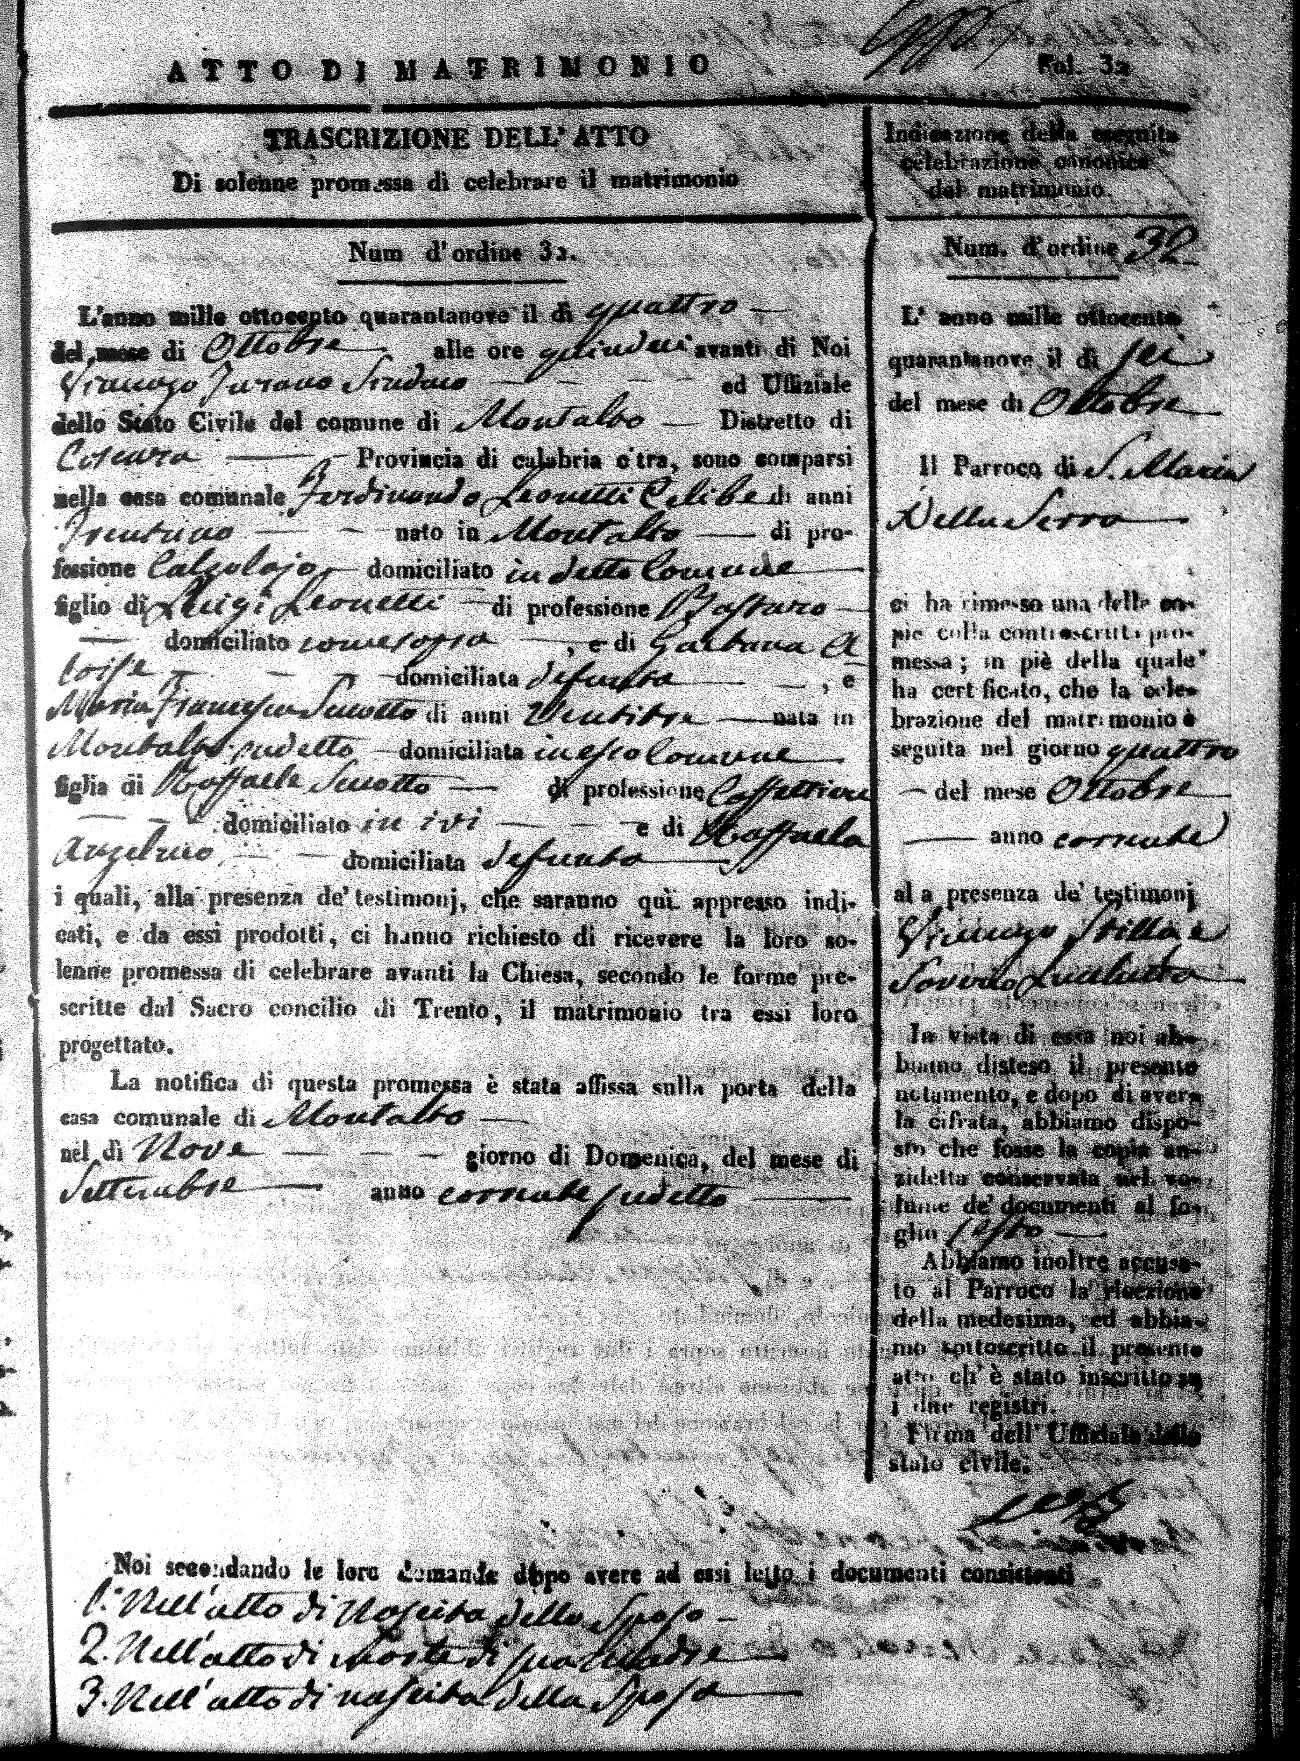 ATTO DI MATRIMONIO
Fol. 32
TRASCRIZIONE DELL' ATTO
Di solenne promessa di celebrare il matrimonio
Num d'ordine 32.
L'anno mille ottocento quarantanove il dì quattro
del mese di Ottobre alle ore quindeci avanti di Noi
Sindaco ed Uffiziale
dello Stato Civile del comune di Montalto Distretto di
Cosenza Provincia di calabria citra, sono comparsi
nella casa comunale Ferdinando Leonetti Celibe di anni
Trentuno nato in Montalto di pro-
fessione Calzolajo domiciliato in detto Comune
figlio di Luigi Leonetti di professione Bastaro
domiciliato come sopra , e di Gaetana A
loise domiciliata defunta , e
Maria Francesca Sucotto di anni Ventitre nata in
Montalto sudetto domiciliata in esso Comune
figlia di Raffaele Sucotto di professione Caffettiere
domiciliato in ivi e di Raffaela
Angelino domiciliata defunta
i quali, alla presenza de' testimonj, che saranno quì appresso indi-
cati, e da essi prodotti, ci hanno richiesto di ricevere la loro so-
lenne promessa di celebrare avanti la Chiesa, secondo le forme pre-
scritte dal Sacro concilio di Trento, il matrimonio tra essi loro
progettato.
La notifica di questa promessa è stata affissa sulla porta della
casa comunale di Montalto
nel dì Nove giorno di Domenica, del mese di
Settembre anno corrente sudetto
Indicazione della eseguita
celebrazione canonica
del matrimonio.
Num. d'ordine 32
L' anno mille ottocento
quarantanove il dì sei
del mese di Ottobre
Il Parroco di S. Maria
Della Serra
ci ha rimesso una delle co-
pie colla controscritta pro-
messa; in piè della quale
ha certificato, che la cele-
brazione del matrimonio è
seguita nel giorno quattro
del mese Ottobre
anno corrente
alla presenza de' testimonj
Stillo e
In vista di essa noi ab-
biamo disteso il presente
notamento, e dopo di averla
la cifrata, abbiamo dispo-
sto che fosse la copia an-
zidetta conservata nel vo-
lume de' documenti al fo-
glio sesto
Abbiamo inoltre accusa-
to al Parroco la ricezione
della medesima, ed abbia-
mo sottoscritto il presente
atto ch' è stato inscritto su
i due registri.
Firma dell' Uffiziale dello
stato civile.
Noi secondando le loro domande dopo avere ad essi letto i documenti consistenti
1.° Nell'atto di Nascita dello Sposo
2. Nell'atto di Morte di sua Madre
3. Nell'atto di nascita della Sposa